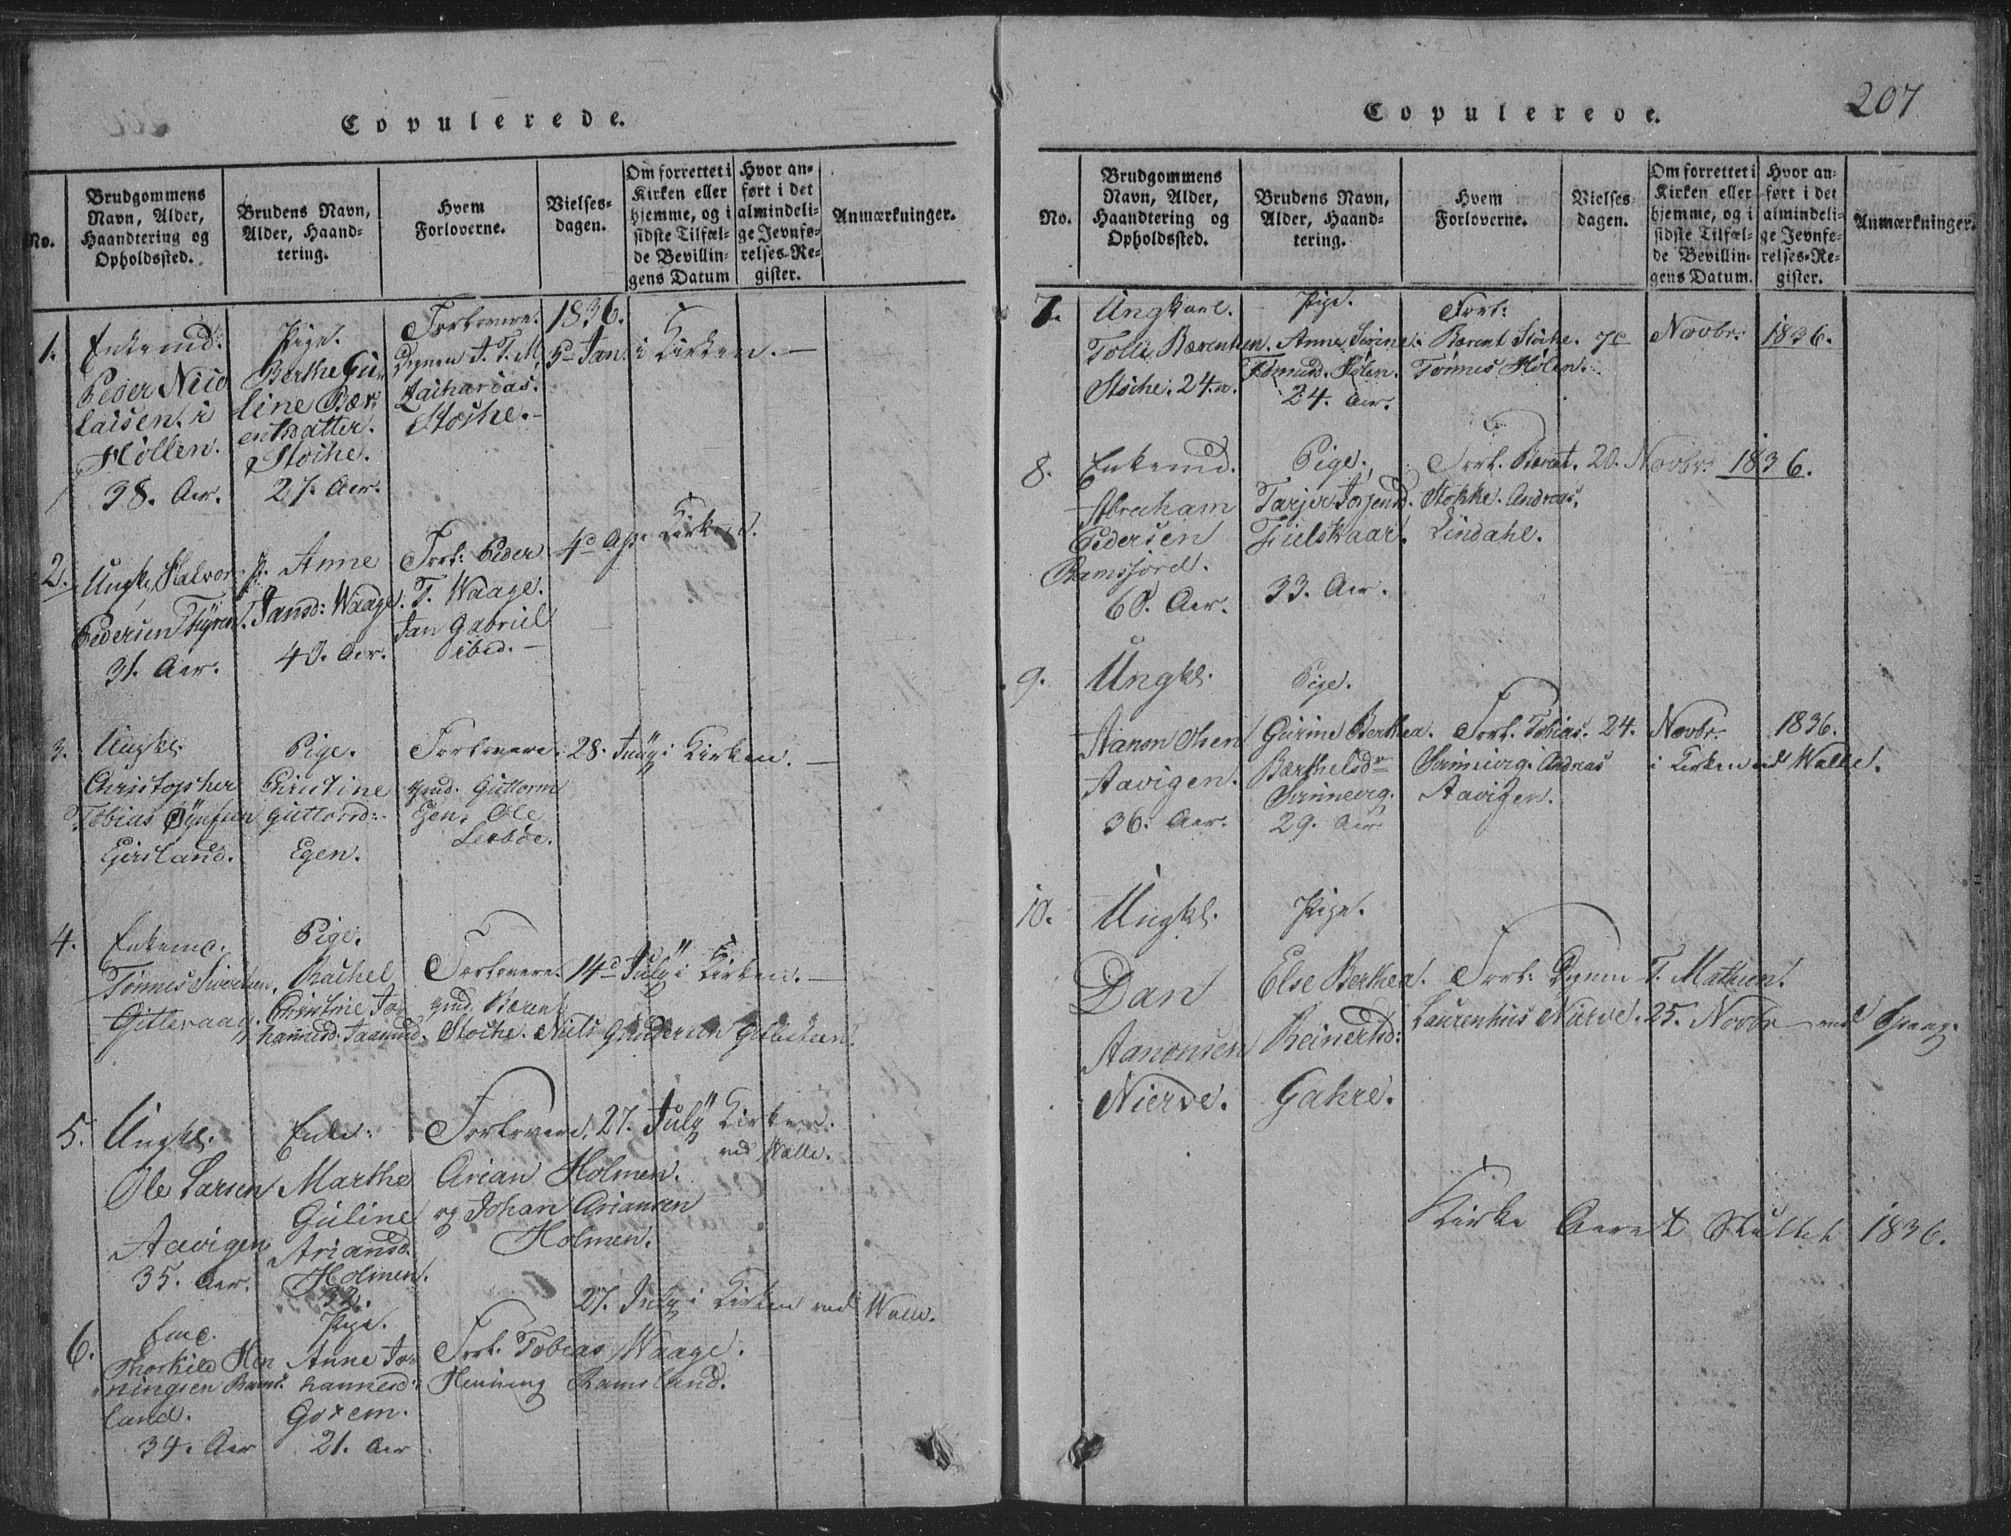 Copulerede.
No.
Brudgommens Navn, Alder, Haandtering og Opholdssted.
Brudens Navn, Alder, Haandtering.
Hvem Forloverne.
Vielsesdagen.
Om forrettet i Kirken eller hjemme, og i sidste Tilfælde Bevillingens Datum
Hvor anført i det almindelige Jevnførelses-Register.
Anmærkninger.
1.
Enkemd.
Peder Nico
laisen. i
Höllen.
38. Aar.
Pige.
Berthe Gu
line Bær
entsdatter.
Stöche.
27. Aar.
Forlovere.
Dynen T. T. M
Zacharias.
Stoche.-
1836.
5te Jan:
i Kirken. —
2.
Ungk. Halvor
Pedersen
31. Aar.
P. Anne
Jansd: Waage.
40. Aar.
Forl: Peder
T. Waage.
Jan Gabriel
ibid. —
4de Ap
Kirken.
3.
Ungkl.
Christopher
Tobias
Egisland.
Pige.
Christine
Guttormd:
Egen.
Forlovere.
Guttorm
Egen. Ole
28. Juny i Kirken. —
4.
Enkemd.
Tønnes
Gitlevaag.
Pige.
Rachel
Christine Jo
hannesd.
Forlovere.
Bærent
Stoche. Niels Gundersen
14d July i Kirken. —
5.
Ungkl.
Ole Larsen
Aavigen
35. Aar.
Enke:
Marthe
Guline
Ariansd.
Holmen.
32.
Forlovere.
Arian Holmen.
og Johan Ariansen
Holmen.
27. July Kirken.
ved Walle.
6.
Emd.
Thorkild Hen
ningsen Rams
land.
34. Aar
Pige.
Anne Jo
hannesd:
21. Aar
Forl. Tobias Waage.
Henning Ramsland.
27. July i Kirken ved Walle.
Copulerede.
207
No.
Brudgommens Navn, Alder, Haandtering og Opholdssted.
Brudens Navn, Alder, Haandtering.
Hvem Forloverne.
Vielsesdagen.
Om forrettet i Kirken eller hjemme, og i sidste Tilfælde Bevillingens Datum.
Hvor anført i det almindelige Jevnførelses-Register.
Anmærkninger.
7.
Ungkarl.
Tolle Bærentsen.
Stöche. 24 a.
Pige.
Anne Serine
Tønnesd. Hølen.
24. Aar.
Forl:
Bærent Stöche.
Tønnes Hølen.
7de Novbr. 1836.
8.
Enkemd.
Abraham
Pedersen
Ramsfjord.
60. Aar.
Pige.
Tarjer Torjensd.
Fielskaar.
33. Aar.
Forl. Bærent.
Stokke. Andreas
Lindahl.
20. Novbr. 1836.
9.
Ungkl.
Aanon Olsen
Aavigen.
36. Aar.
Pige.
Gurine Berthea.
Barthelsdr
Sannevig.
29. Aar
Forl. Tobias.
Sannevig. Andreas
Aavigen.
24. Novbr. 1836.
i Kirken ved Walle.
10.
Ungkl.
Dan
Aanonsen
Nierve.
Pige.
Else Berthea.
Reinertsd:
Gahre.
Forl: Dynen T. Mathisen.
Laurentius Nierve. 25. Novbr ved Spang.
Kirke Aaret Sluttet 1836.